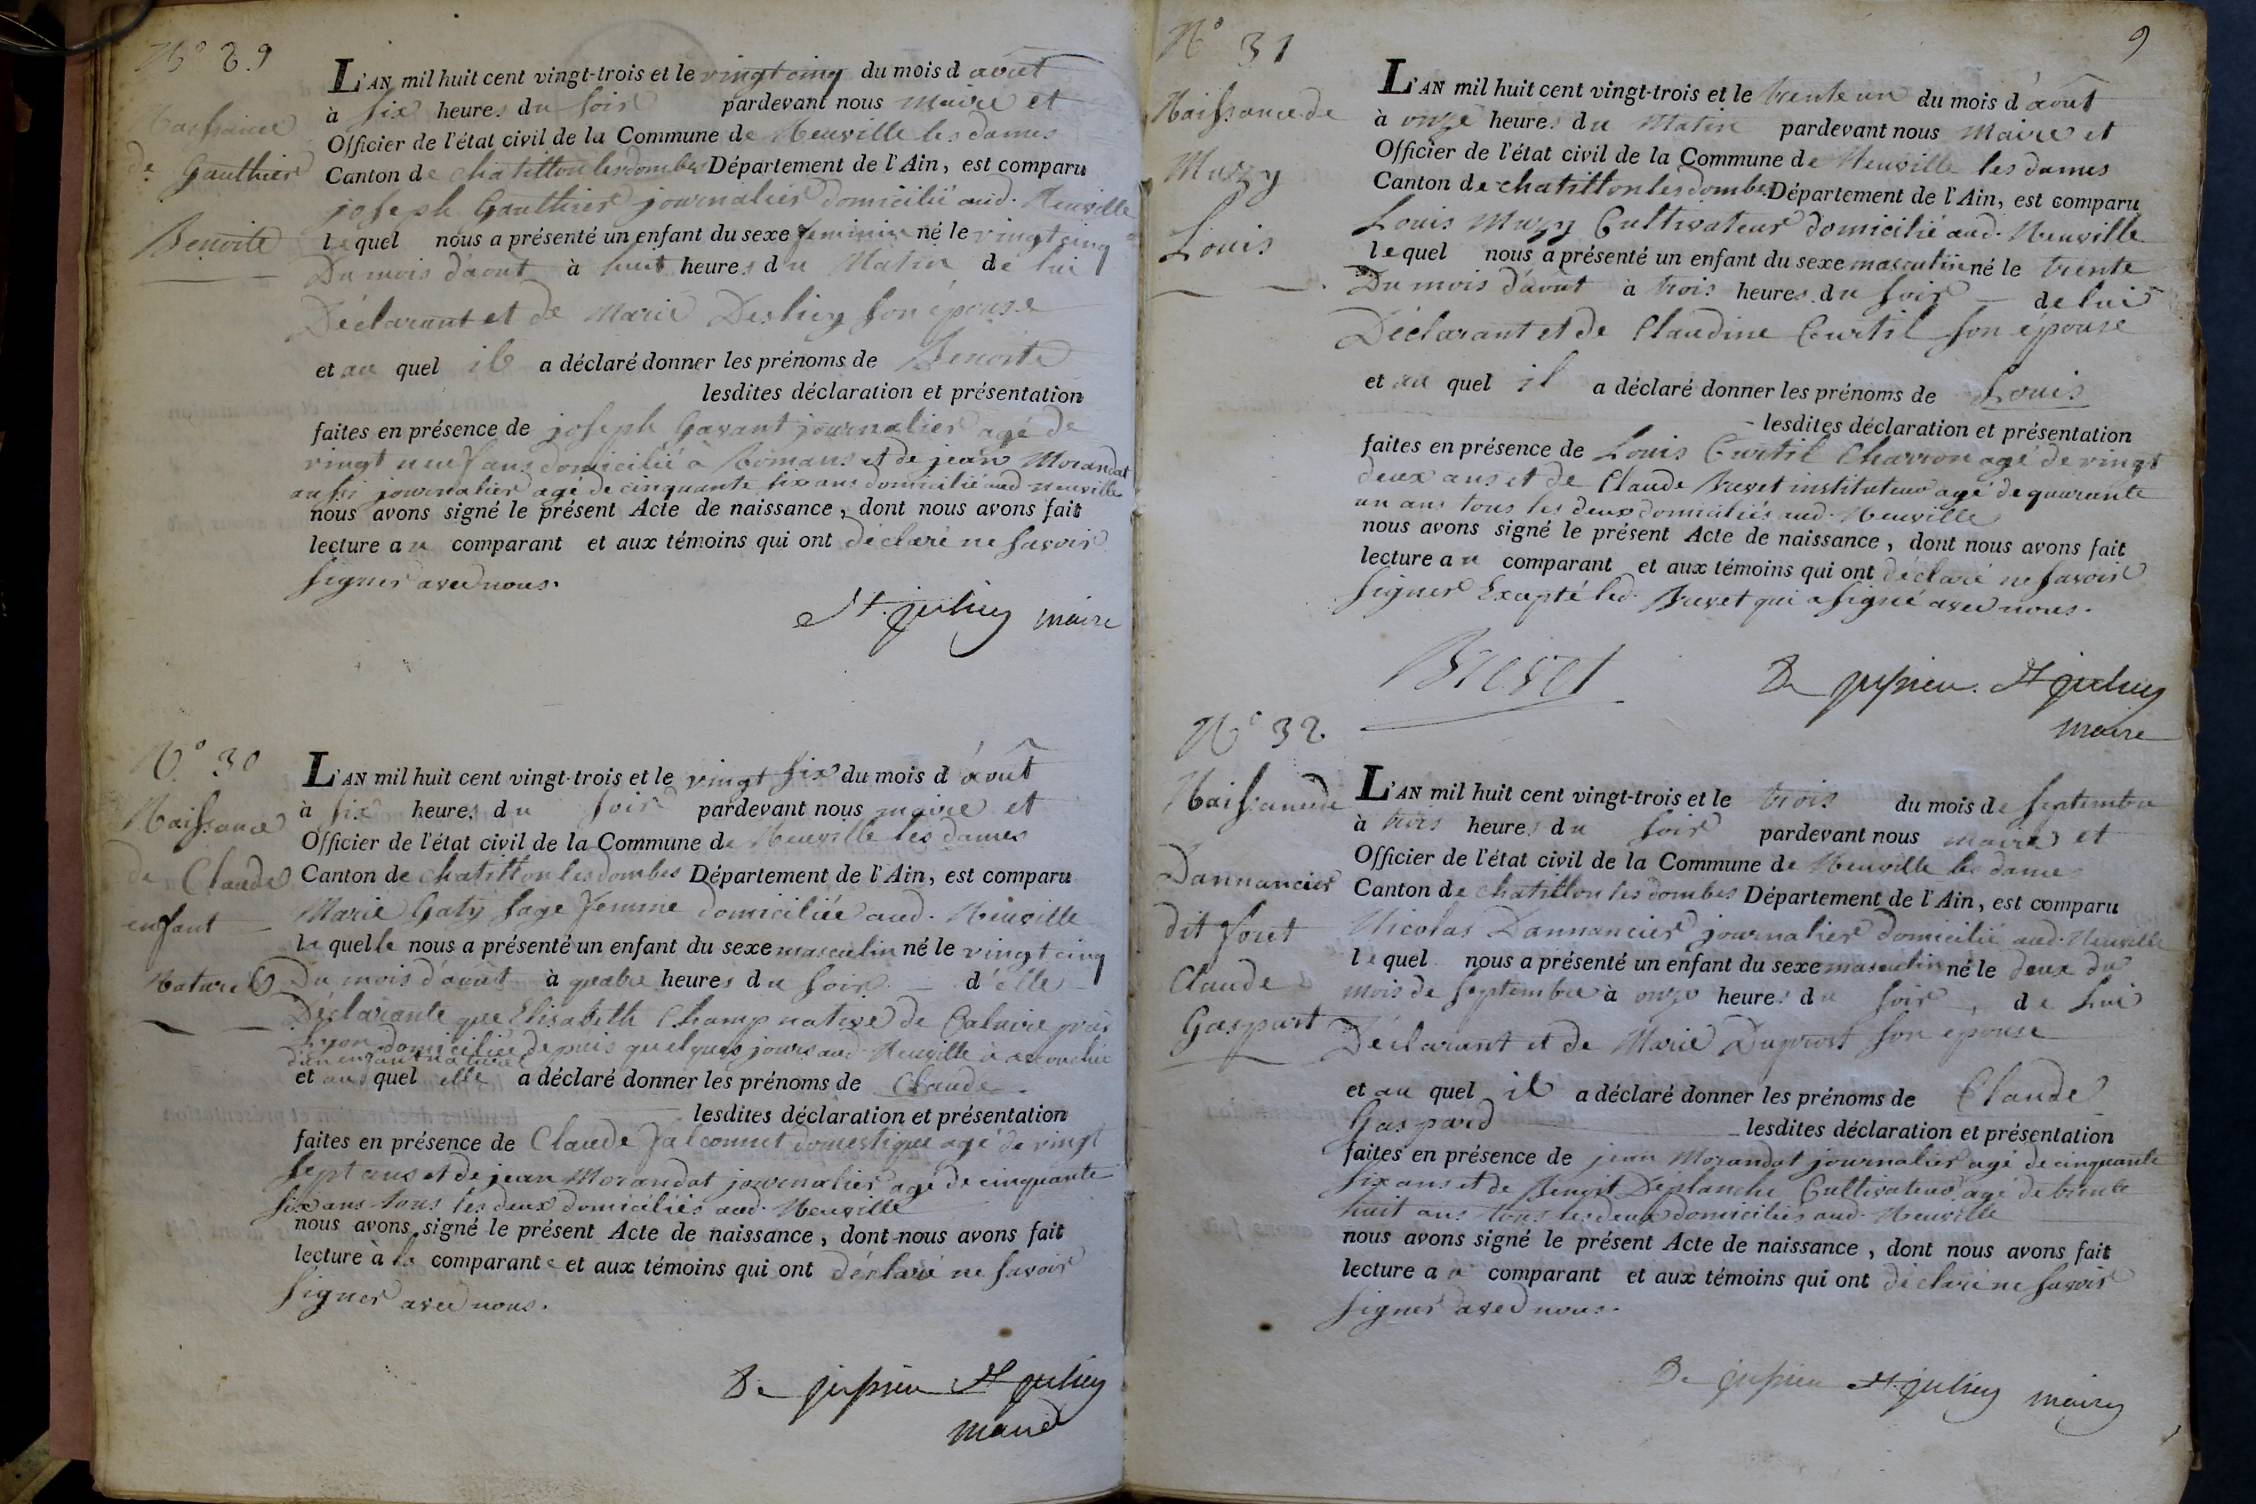 N° 29
Naissance
de Gauthier
Benoite
L'AN mil huit cent vingt-trois et le vingt cinq du mois d'août
à six heures du soir pardevant nous Maire et
Officier de l'état civil de la Commune de Neuville les dames
Canton de chatillon les dombes Département de l'Ain, est comparu
joseph Gauthier journalier domicilié aud. Neuville
lequel nous a présenté un enfant du sexe feminin né le vingt cinq
Du mois d'aout à huit heures du Matin de lui
Déclarant et de Marie son épouse
et au quel il a déclaré donner les prénoms de Benoite
lesdites déclaration et présentation
faites en présence de joseph Gavant journalier agé de
vingt neuf ans domicilié à Romans et de jean Morandat
aussi journalier agé de cinquante six ans domicilié aud Neuville
nous avons signé le présent Acte de naissance, dont nous avons fait
lecture au comparant et aux témoins qui ont déclaré ne savoir
signer avec nous.
St. julien maire
N° 30
Naissance
de Claude
enfant
Naturel
L'AN mil huit cent vingt-trois et le vingt six du mois d'août
à six heures du soir pardevant nous maire et
Officier de l'état civil de la Commune de Neuville les dames
Canton de chatillon les dombes Département de l'Ain, est comparu
Marie Gaty sage femme domiciliée aud. Neuville
laquelle nous a présenté un enfant du sexe masculin né le vingt cinq
Du mois d'aout à quatre heures du soir d'elle
Déclarante que Elisabeth Champ native de Caluire près
Lyon domiciliée depuis quelques jours aud Neuville à accouchée
d'un enfant naturel
et au quel elle a déclaré donner les prénoms de Claude
lesdites déclaration et présentation
faites en présence de Claude Falconnet domestique agé de vingt
sept ans et de jean Morandat journalier agé de cinquante
six ans tous les deux domiciliés aud. Neuville
nous avons signé le présent Acte de naissance, dont nous avons fait
lecture à la comparante et aux témoins qui ont déclaré ne savoir
signer avec nous.
De jussieu St julien
maire
9
N° 31
Naissance de
Muzy
Louis
L'AN mil huit cent vingt-trois et le trente un du mois d'août
à onze heures du Matin pardevant nous Maire et
Officier de l'état civil de la Commune de Neuville les dames
Canton de chatillon les dombes Département de l'Ain, est comparu
Louis Muzy Cultivateur domicilié aud. Neuville
lequel nous a présenté un enfant du sexe masculin né le trente
Du mois d'aout à trois heures du soir de lui
Déclarant et de Claudine Curtil son épouse
et au quel il a déclaré donner les prénoms de Louis
lesdites déclaration et présentation
faites en présence de Louis Curtil Charron agé de vingt
deux ans et de Claude Brevet instituteur agé de quarante
un ans tous les deux domiciliés aud. Neuville
nous avons signé le présent Acte de naissance, dont nous avons fait
lecture au comparant et aux témoins qui ont déclaré ne savoir
signer Excepté led. Brevet qui a signé avec nous.
Brevet
De jussieu St julien
maire
N° 32
Naissance de
Dannancier
dit foret
Claude
Gaspart
L'AN mil huit cent vingt-trois et le trois du mois de septembre
à trois heures du soir pardevant nous maire et
Officier de l'état civil de la Commune de Neuville les dames
Canton de chatillon les dombes Département de l'Ain, est comparu
Nicolas Dannancier journalier domicilié aud. Neuville
lequel nous a présenté un enfant du sexe masculin né le deux du
mois de septembre à onze heures du soir, de lui
Déclarant et de Marie Duprost son épouse
et au quel il a déclaré donner les prénoms de Claude
Gaspard lesdites déclaration et présentation
faites en présence de jean Morandat journalier agé de cinquante
six ans et de Benoit Deplanche Cultivateur agé de trente
huit ans tous les deux domiciliés aud. Neuville
nous avons signé le présent Acte de naissance, dont nous avons fait
lecture au comparant et aux témoins qui ont déclaré ne savoir
signer avec nous.
De jussieu St. julien maire